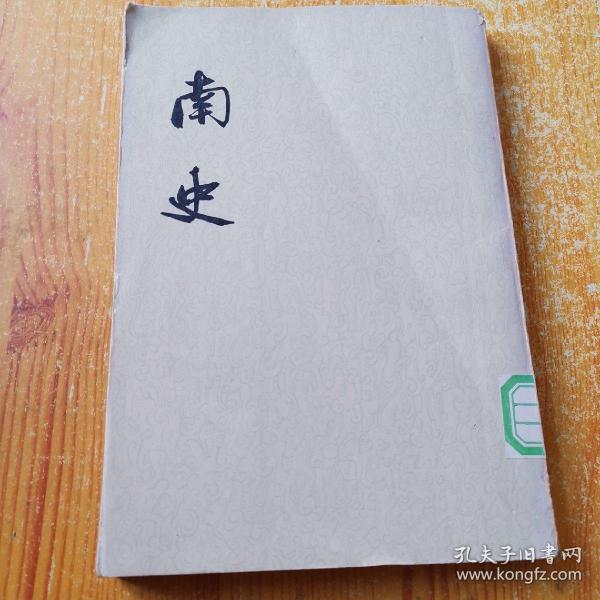 南
史
孔夫子旧書网
www.kongfz.com